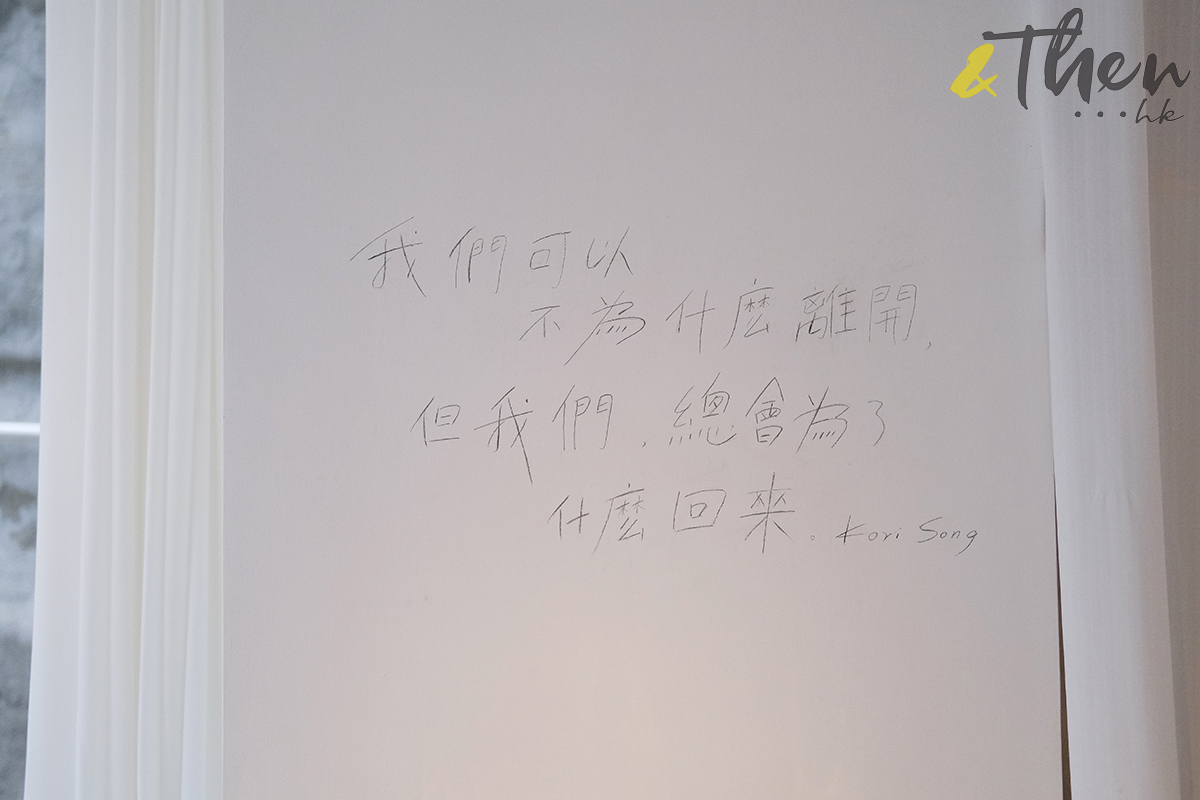 &Then
...hk
我們可以
不為什麼離開,
但我們、總會為了
什麼回來。Kori Song